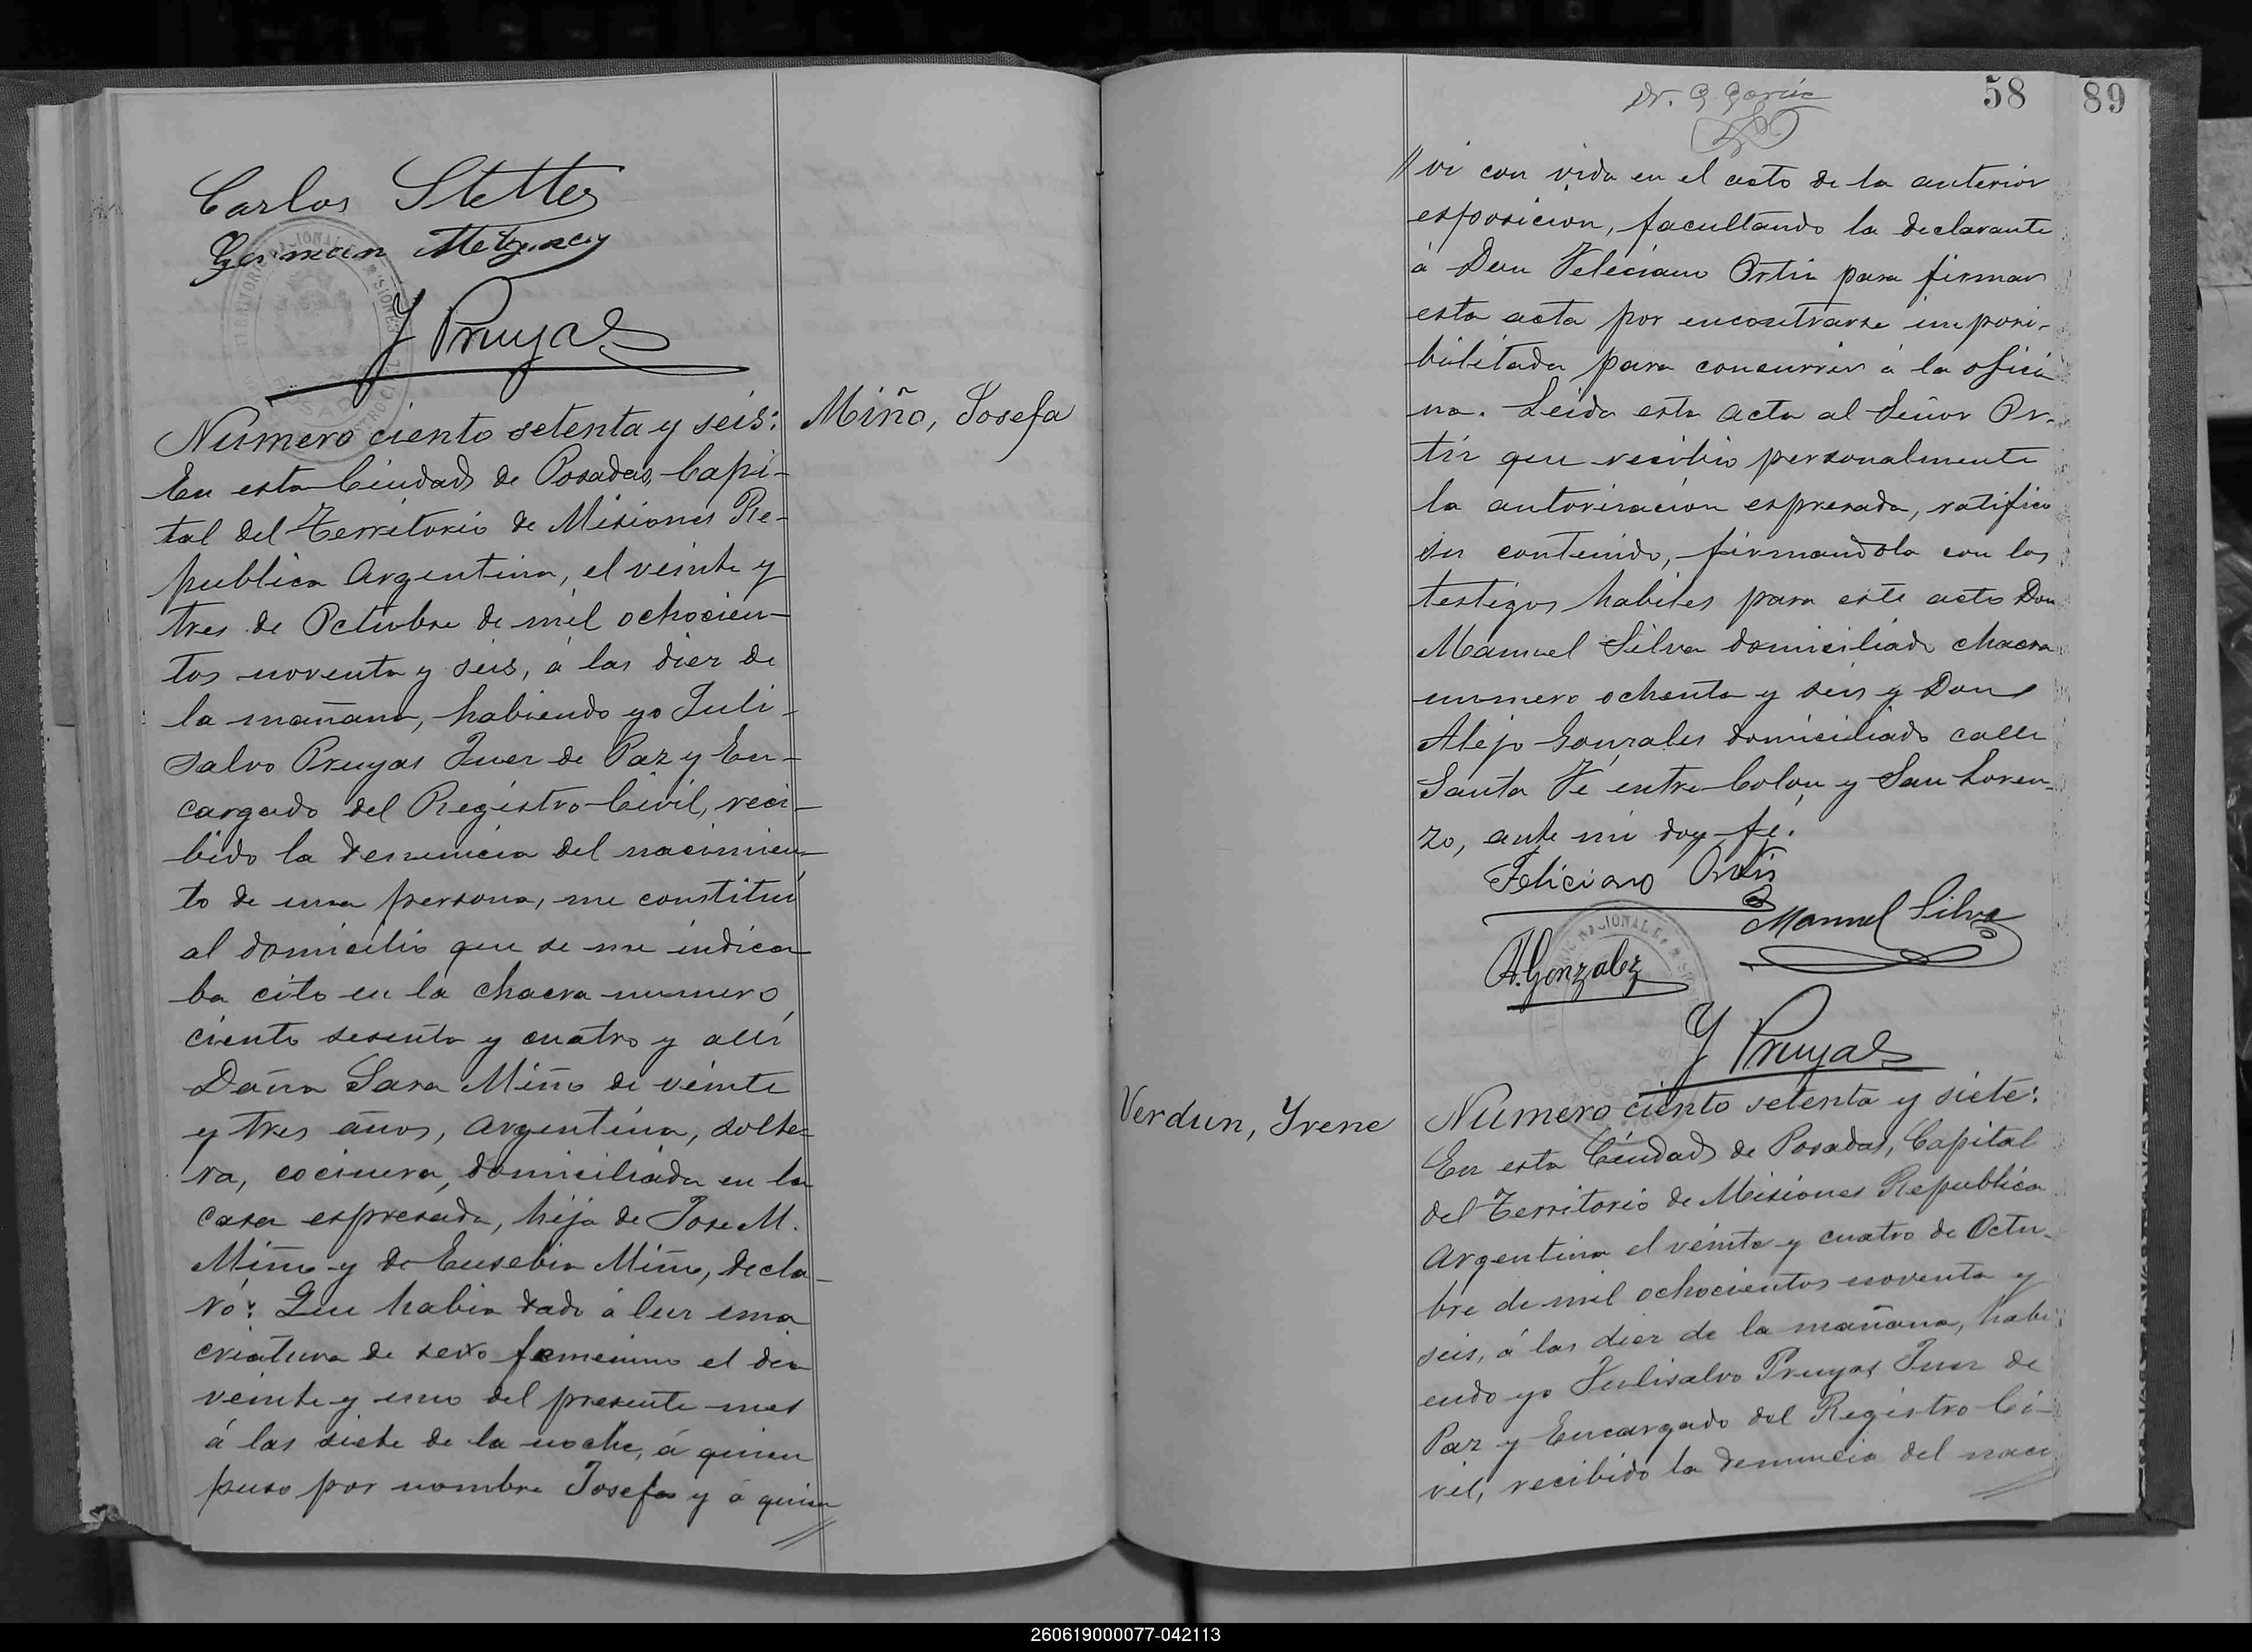 Carlos Stetter
German
Y Pruyas
Miño, Josefa
Número ciento setenta y seis:
En esta Ciudad de Posadas, Capi-
tal del Territorio de Misiones Re-
publica Argentina, el veinte y
tres de Octubre de mil ochocien-
tos noventa y seis, á las diez de
la mañana, habiendo yo Juli-
salvo Pruyas Juez de Paz y En-
cargado del Registro Civil, reci-
bido la denuncia del nacimien-
to de una persona, me constituí
al domicilio que se me indica
ba cito en la chacra numero
ciento sesenta y cuatro y allí
Doña Sara Miño de veinte
y tres años, Argentina, solte-
ra, cocinera, domiciliada en la
casa espresada, hija de Jose M.
Miño y de Eusebia Miño, decla-
ró: Que habia dado á luz una
criatura de sexo femenino el dia
veinte y uno del presente mes
á las siete de la noche, á quien
puso por nombre Josefa y á quien
//
Dr. G. Garcia
58 89
// vi con vida en el acto de la anterior
esposicion, facultando la declarante
á Don Feliciano Ortiz para firmar
esta acta por encontrarse imposi-
bilitada para concurrir á la ofici
na. Leida esta acta al Señor Or-
tiz que recibio personalmente
la autorizacion espresada, ratifico
su contenido, firmandola con los
testigos habiles para este acto Don
Manuel Silva domiciliado chacra
numero ochenta y seis y Don
Alejo Gonzales domiciliado calle
Santa Fé entre Colon y San Loren-
zo, ante mi doy fé.
Feliciano Ortiz
Manuel Silva
A. Gonzalez
Y Pruyas
Verdun, Yrene
Número ciento setenta y siete:
En esta Ciudad de Posadas, Capital
del Territorio de Misiones Republica
Argentina el veinte y cuatro de Octu-
bre de mil ochocientos noventa y
seis, á las diez de la mañana, habi
endo yo Julisalvo Pruyas Juez de
Paz y Encargado del Registro Ci-
vil, recibido la denuncia del naci
//
260619000077-042113